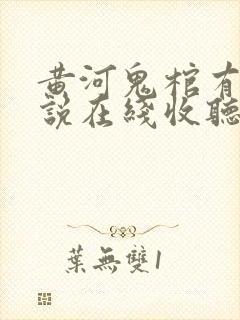 黄河鬼棺有
說在綫收聽
葉無雙1